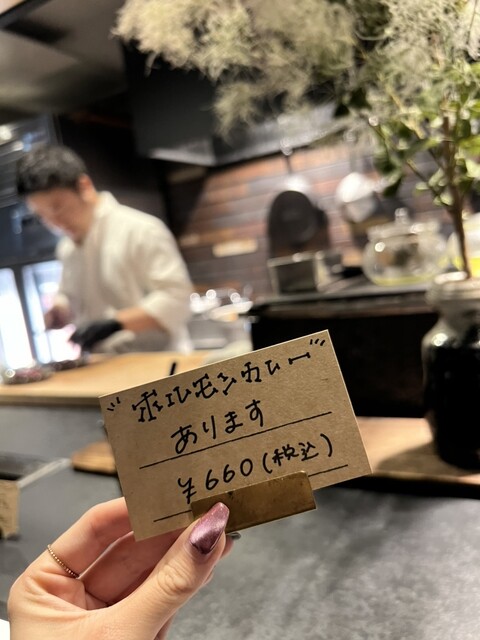 "ホルモンカレー"
あります
¥660(税込)